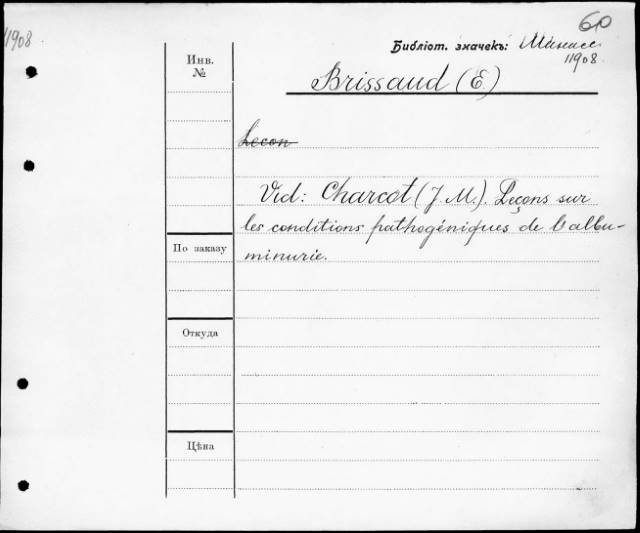 60
11908
Библіот. значекъ:
11908
Инв.
№
Brissaud (E.)
Leçon
Vid: Charcot (J. M.). Leçons sur
les conditions pathogéniques de l'albu-
minurie.
По заказу
Откуда
Цѣна